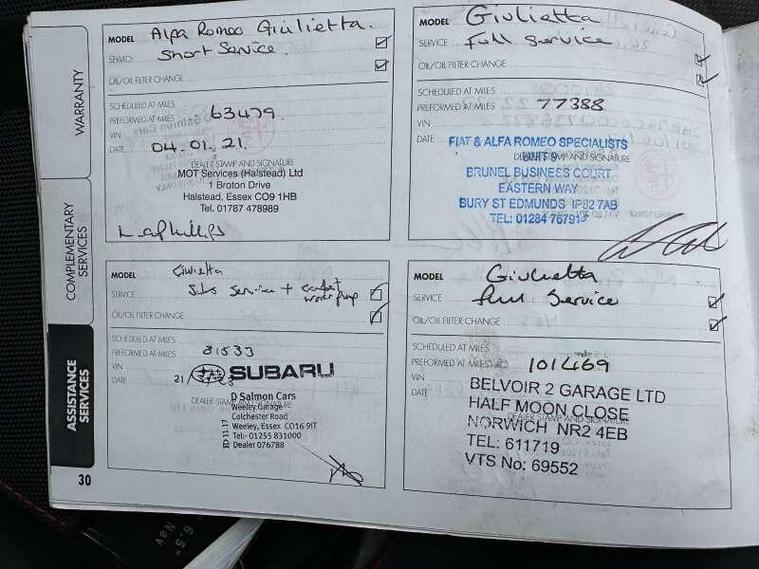 WARRANTY
COMPLEMENTARY SERVICES
ASSISTANCE SERVICES
30
MODEL Alfa Romeo Giulietta.
SERVICE Short Service.
OIL/OIL FILTER CHANGE
SCHEDULED AT MILES
PREFORMED AT MILES 63479.
VIN
DATE 04.01.21.
DEALER STAMP AND SIGNATURE
MOT Services (Halstead) Ltd
1 Broton Drive
Halstead, Essex CO9 1HB
Tel. 01787 478989
MODEL Giulietta
SERVICE Full Service
OIL/OIL FILTER CHANGE
SCHEDULED AT MILES
PREFORMED AT MILES 77388
VIN
DATE
FIAT & ALFA ROMEO SPECIALISTS
UNIT 9
DEALER STAMP AND SIGNATURE
BRUNEL BUSINESS COURT
EASTERN WAY
BURY ST EDMUNDS IP32 7AB
TEL: 01284 767913
MODEL Giulietta
SERVICE Service +
OIL/OIL FILTER CHANGE
SCHEDULED AT MILES
PREFORMED AT MILES 81533
VIN
DATE 21/
SUBARU
DEALER STAMP AND SIGNATURE
D Salmon Cars
Weeley Garage
Colchester Road
Weeley, Essex CO16 9JT
Tel:- 01255 831000
Dealer 076788
MODEL Giulietta
SERVICE Full Service
OIL/OIL FILTER CHANGE
SCHEDULED AT MILES
PREFORMED AT MILES 101469
VIN
DATE
BELVOIR 2 GARAGE LTD
HALF MOON CLOSE
DEALER STAMP AND SIGNATURE
NORWICH NR2 4EB
TEL: 611719
VTS No: 69552
6.5"
Nav